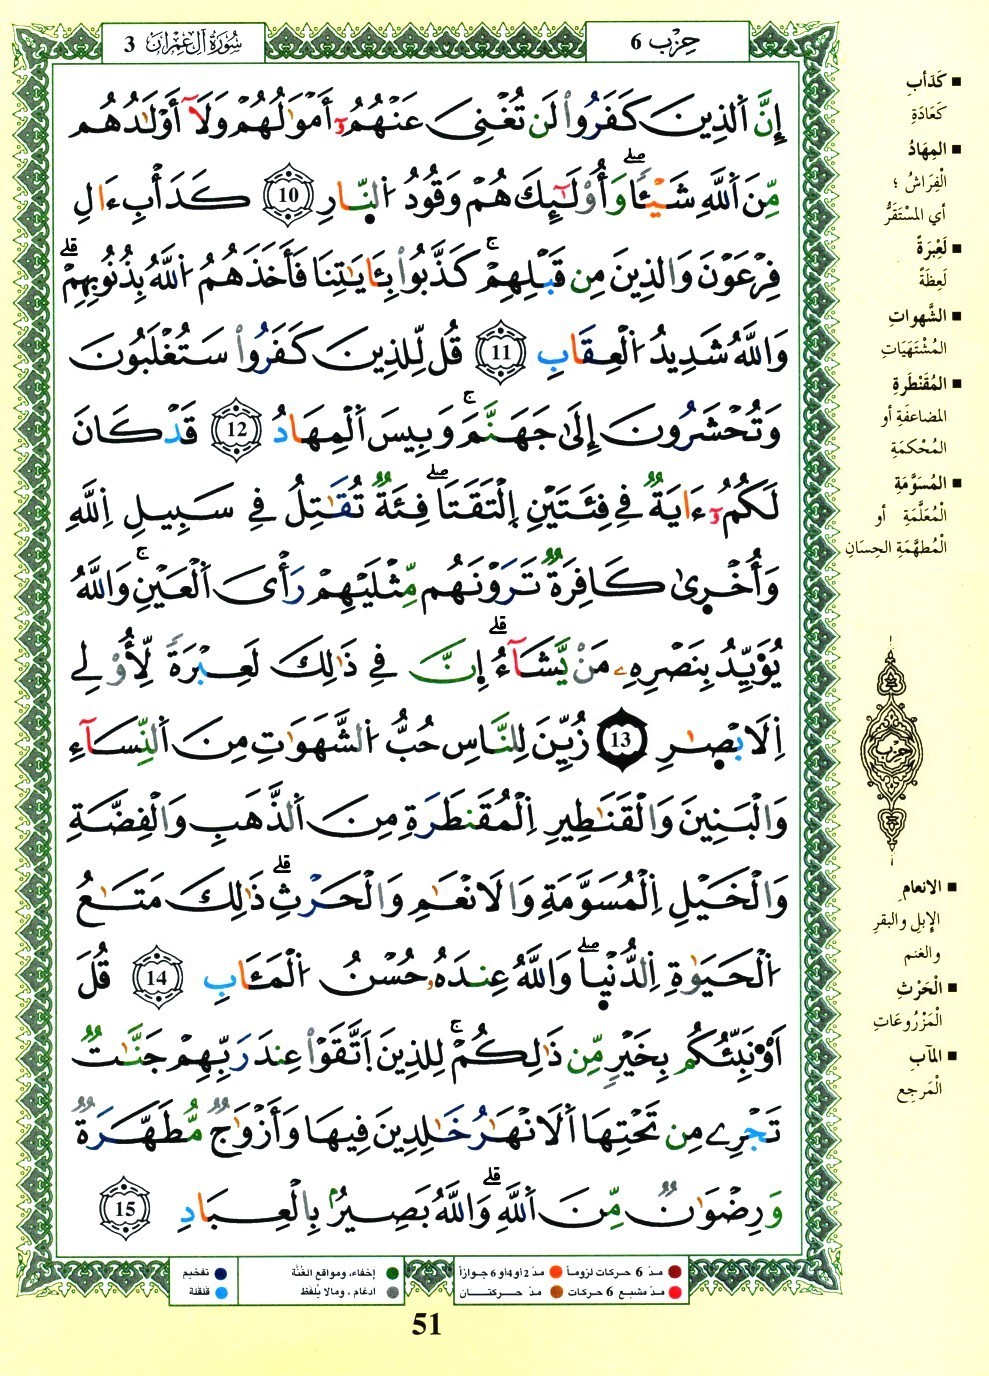 سُورَةُ آلِ عِمْرَانَ 3
حِزْب 6
إِنَّ اَ۬لذِينَ كَفَرُواْ لَن تُغْنِيَ عَنْهُمُۥٓ أَمْوَٰلُهُمْ وَلَآ أَوْلَٰدُهُم
مِّنَ اَ۬للَّهِ شَيْـٔاٗۖ وَأُوْلَٰٓئِكَ هُمْ وَقُودُ اُ۬لنّ۪ارِ 10 كَدَأْبِ ءَالِ
فِرْعَوْنَ وَالذِينَ مِن قَبْلِهِمْۚ كَذَّبُواْ بِـَٔايَٰتِنَا فَأَخَذَهُمُ اُ۬للَّهُ بِذُنُوبِهِمْۗ
وَاللَّهُ شَدِيدُ اُ۬لْعِقَابِ 11 قُل لِّلذِينَ كَفَرُواْ سَتُغْلَبُونَ
وَتُحْشَرُونَ إِلَىٰ جَهَنَّمَۚ وَبِيسَ اَ۬لْمِهَادُ 12 قَدْ كَانَ
لَكُمُۥٓ ءَايَةٞ فِي فِئَتَيْنِ اِ۪لْتَقَتَاۖ فِئَةٞ تُقَٰتِلُ فِي سَبِيلِ اِ۬للَّهِ
وَأُخْر۪يٰ كَافِرَةٞ تَرَوْنَهُم مِّثْلَيْهِمْ رَأْيَ اَ۬لْعَيْنِۚ وَاللَّهُ
يُؤَيِّدُ بِنَصْرِهِۦ مَنْ يَّشَآءُۗ إِنَّ فِي ذَٰلِكَ لَعِبْرَةٗ لِّأُوْلِي
اِ۬لَابْصٰ۪رِ 13 زُيِّنَ لِلنَّاسِ حُبُّ اُ۬لشَّهَوَٰتِ مِنَ اَ۬لنِّسَآءِ
وَالْبَنِينَ وَالْقَنَٰطِيرِ اِ۬لْمُقَنطَرَةِ مِنَ اَ۬لذَّهَبِ وَالْفِضَّةِ
وَالْخَيْلِ اِ۬لْمُسَوَّمَةِ وَالَانْعَٰمِ وَالْحَرْثِۗ ذَٰلِكَ مَتَٰعُ
اُ۬لْحَيَوٰةِ اِ۬لدُّنْي۪اۖ وَاللَّهُ عِندَهُۥ حُسْنُ اُ۬لْمَـَٔابِ 14 قُلَ
اَوْ۟نَبِّئُكُم بِخَيْرٖ مِّن ذَٰلِكُمْۚ لِلذِينَ اَ۪تَّقَوْاْ عِندَ رَبِّهِمْ جَنَّٰتٞ
تَجْرِي مِن تَحْتِهَا اَ۬لَانْهَٰرُ خَٰلِدِينَ فِيهَا وَأَزْوَٰجٞ مُّطَهَّرَةٞ
وَرِضْوَٰنٞ مِّنَ اَ۬للَّهِۗ وَاللَّهُ بَصِيرُۢ بِالْعِبَادِ 15
كَدَأبِ
كَعَادَةِ
المِهَادُ
الْفِرَاشُ ؛
أي المسْتَقَرُّ
لَعِبْرَةً
لَعِظَةً
الشَّهواتِ
المُشْتَهَيَاتِ
المُقَنْطَرَةِ
المضاعفَةِ أو
المُحْكمَةِ
المُسَوَّمَةِ
الْمُعَلَّمَةِ أو
الْمُطهَّمَةِ الحِسَانِ
حِزْب
الانعامِ
الإبل والبقرِ
والغنم
الْحَرْثِ
الْمَزْرُوعَاتِ
المآب
الْمَرجِع
مدّ 6 حركات لزوماً
مدّ 2 أو 4 أو 6 جوازاً
إخفاء، ومواقع الغُنَّة
تفخيم
مدّ مشبع 6 حركات
مدّ حركتان
ادغام، ومالا يُلفظ
قلقلة
51